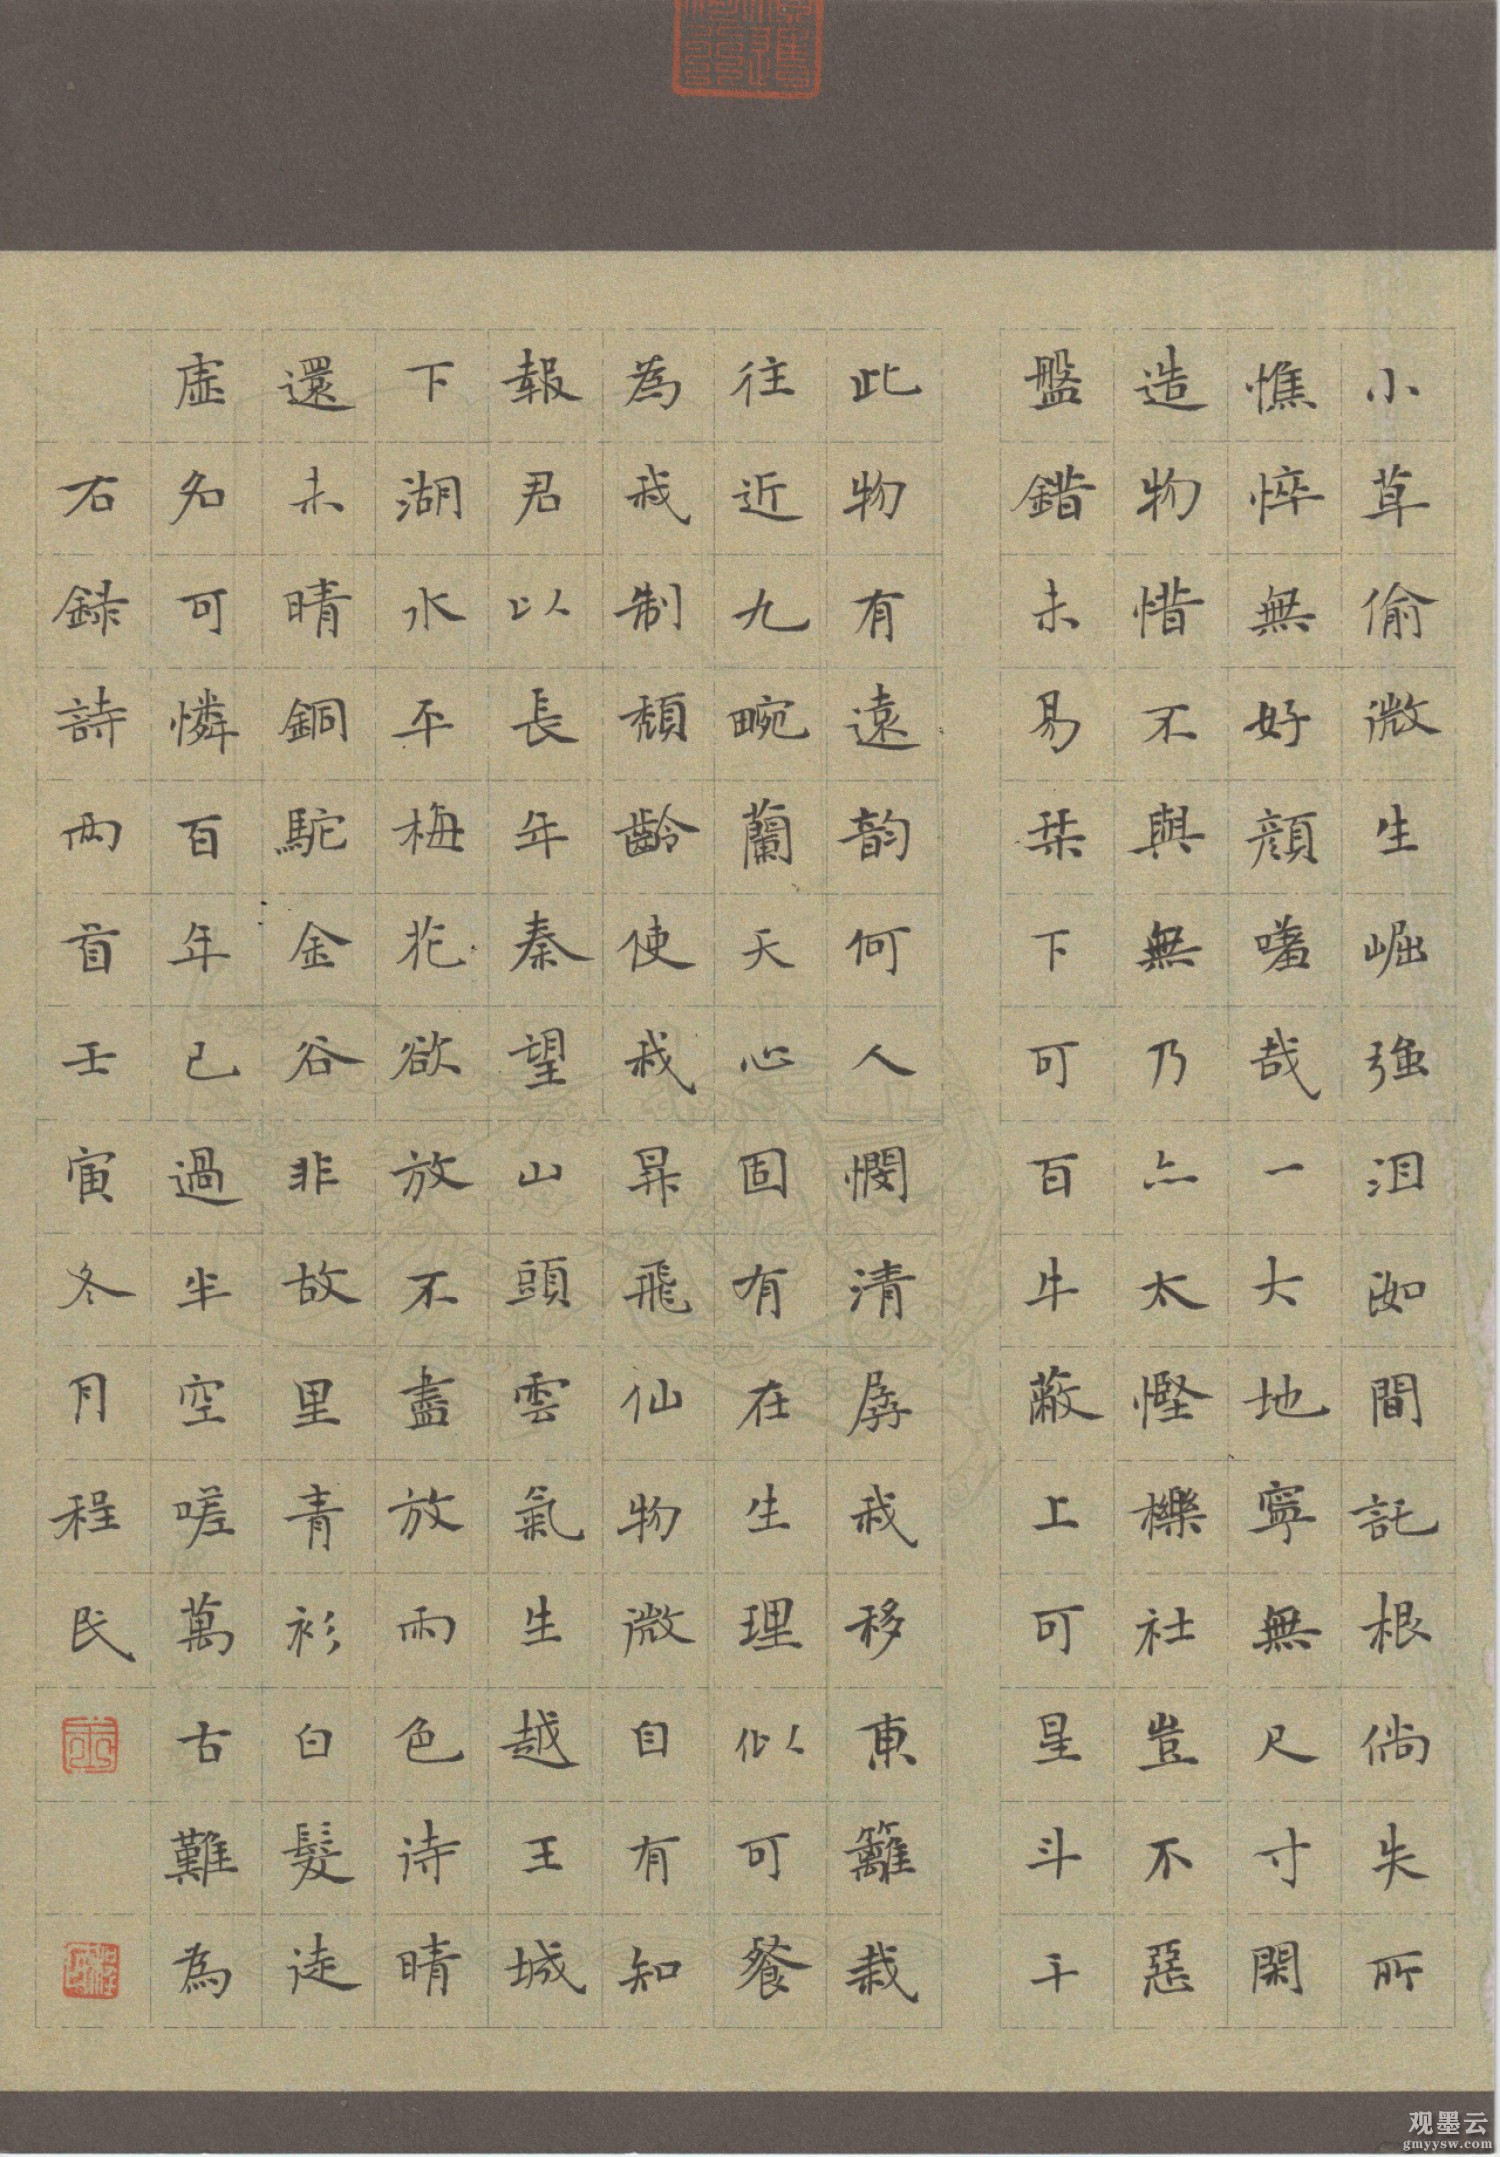 小草偷微生崛強沮洳間託根倘失所
憔悴無好顏嗟哉一大地寧無尺寸閑
造物惜不與無乃亦太慳櫟社豈不惡
盤錯未易栞下可百牛蔽上可星斗干
此物有遠韵何人憫清孱我移東籬栽
往近九畹蘭天心固有在生理似可餐
為我制頹齡使我昇飛仙物微自有知
報君以長年秦望山頭雲氣生越王城
下湖水平梅花欲放不盡放雨色诗晴
還未晴銅駝金谷非故里青衫白髮走
虛名可憐百年已過半空嗟萬古難為
右録詩两首壬寅冬月程民
观墨云
gmyysw.com